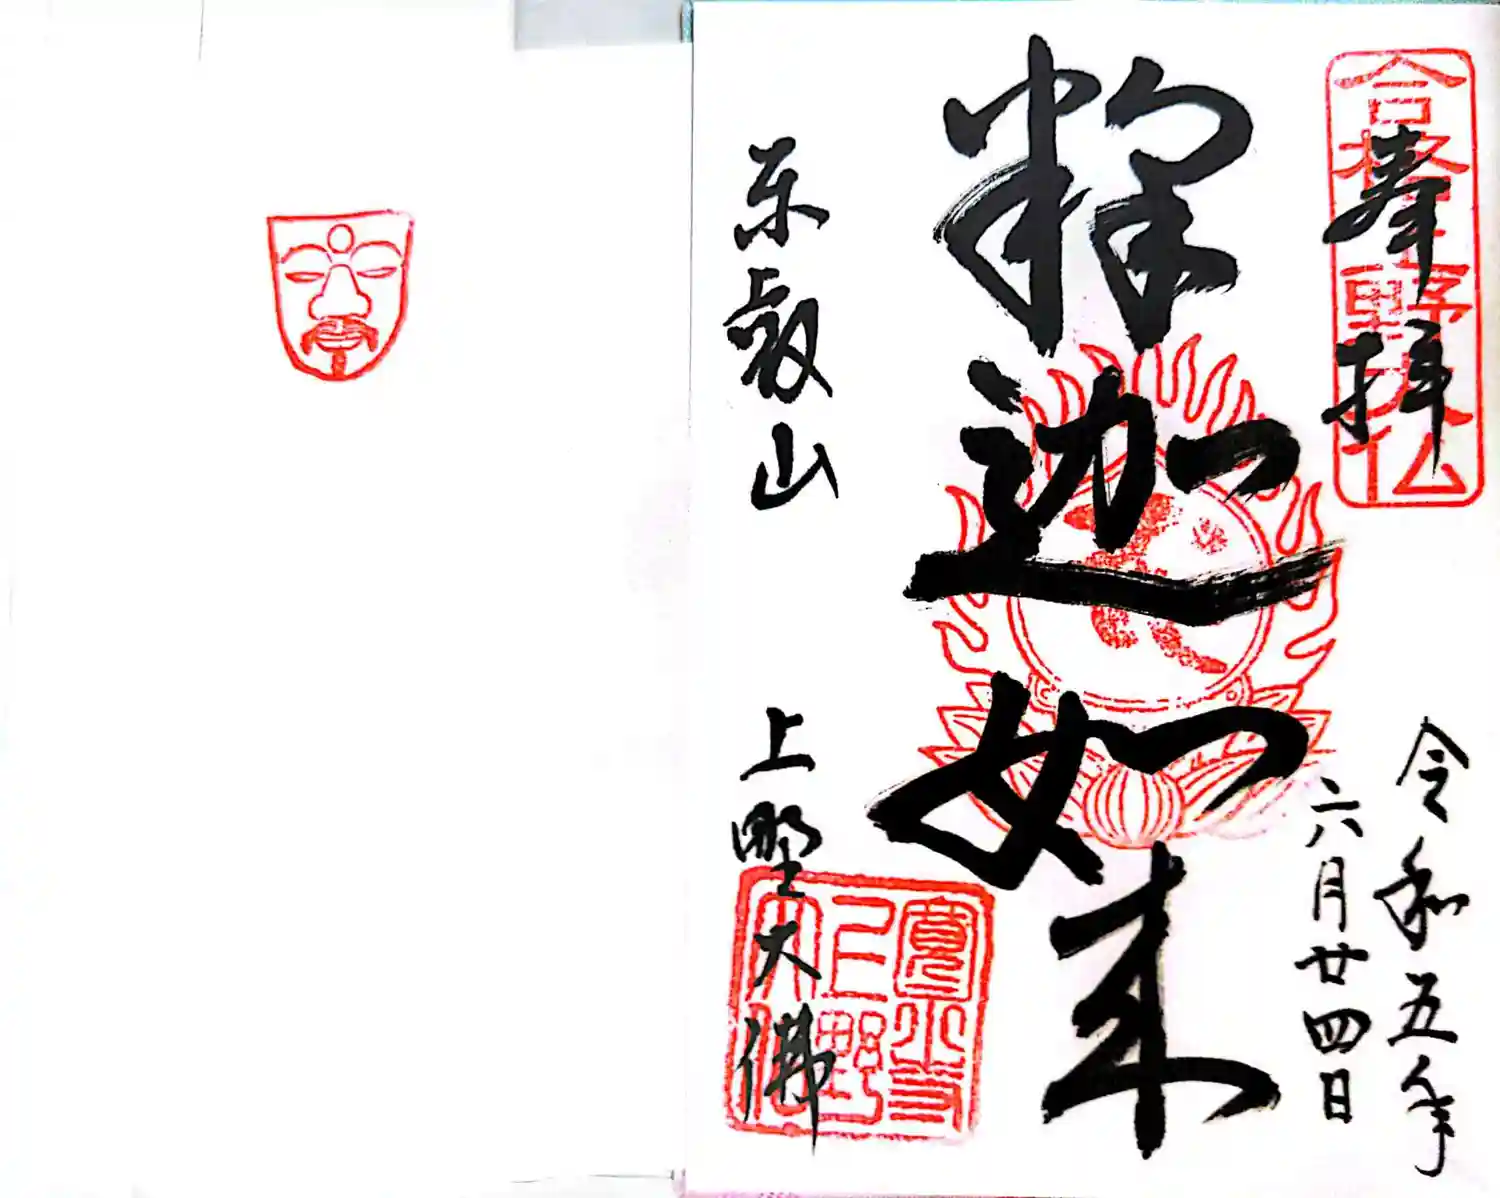 合格上野大仏
奉拝
令和五年
六月廿四日
釈迦如来
東叡山
上野大佛
寛永寺
上野
大佛